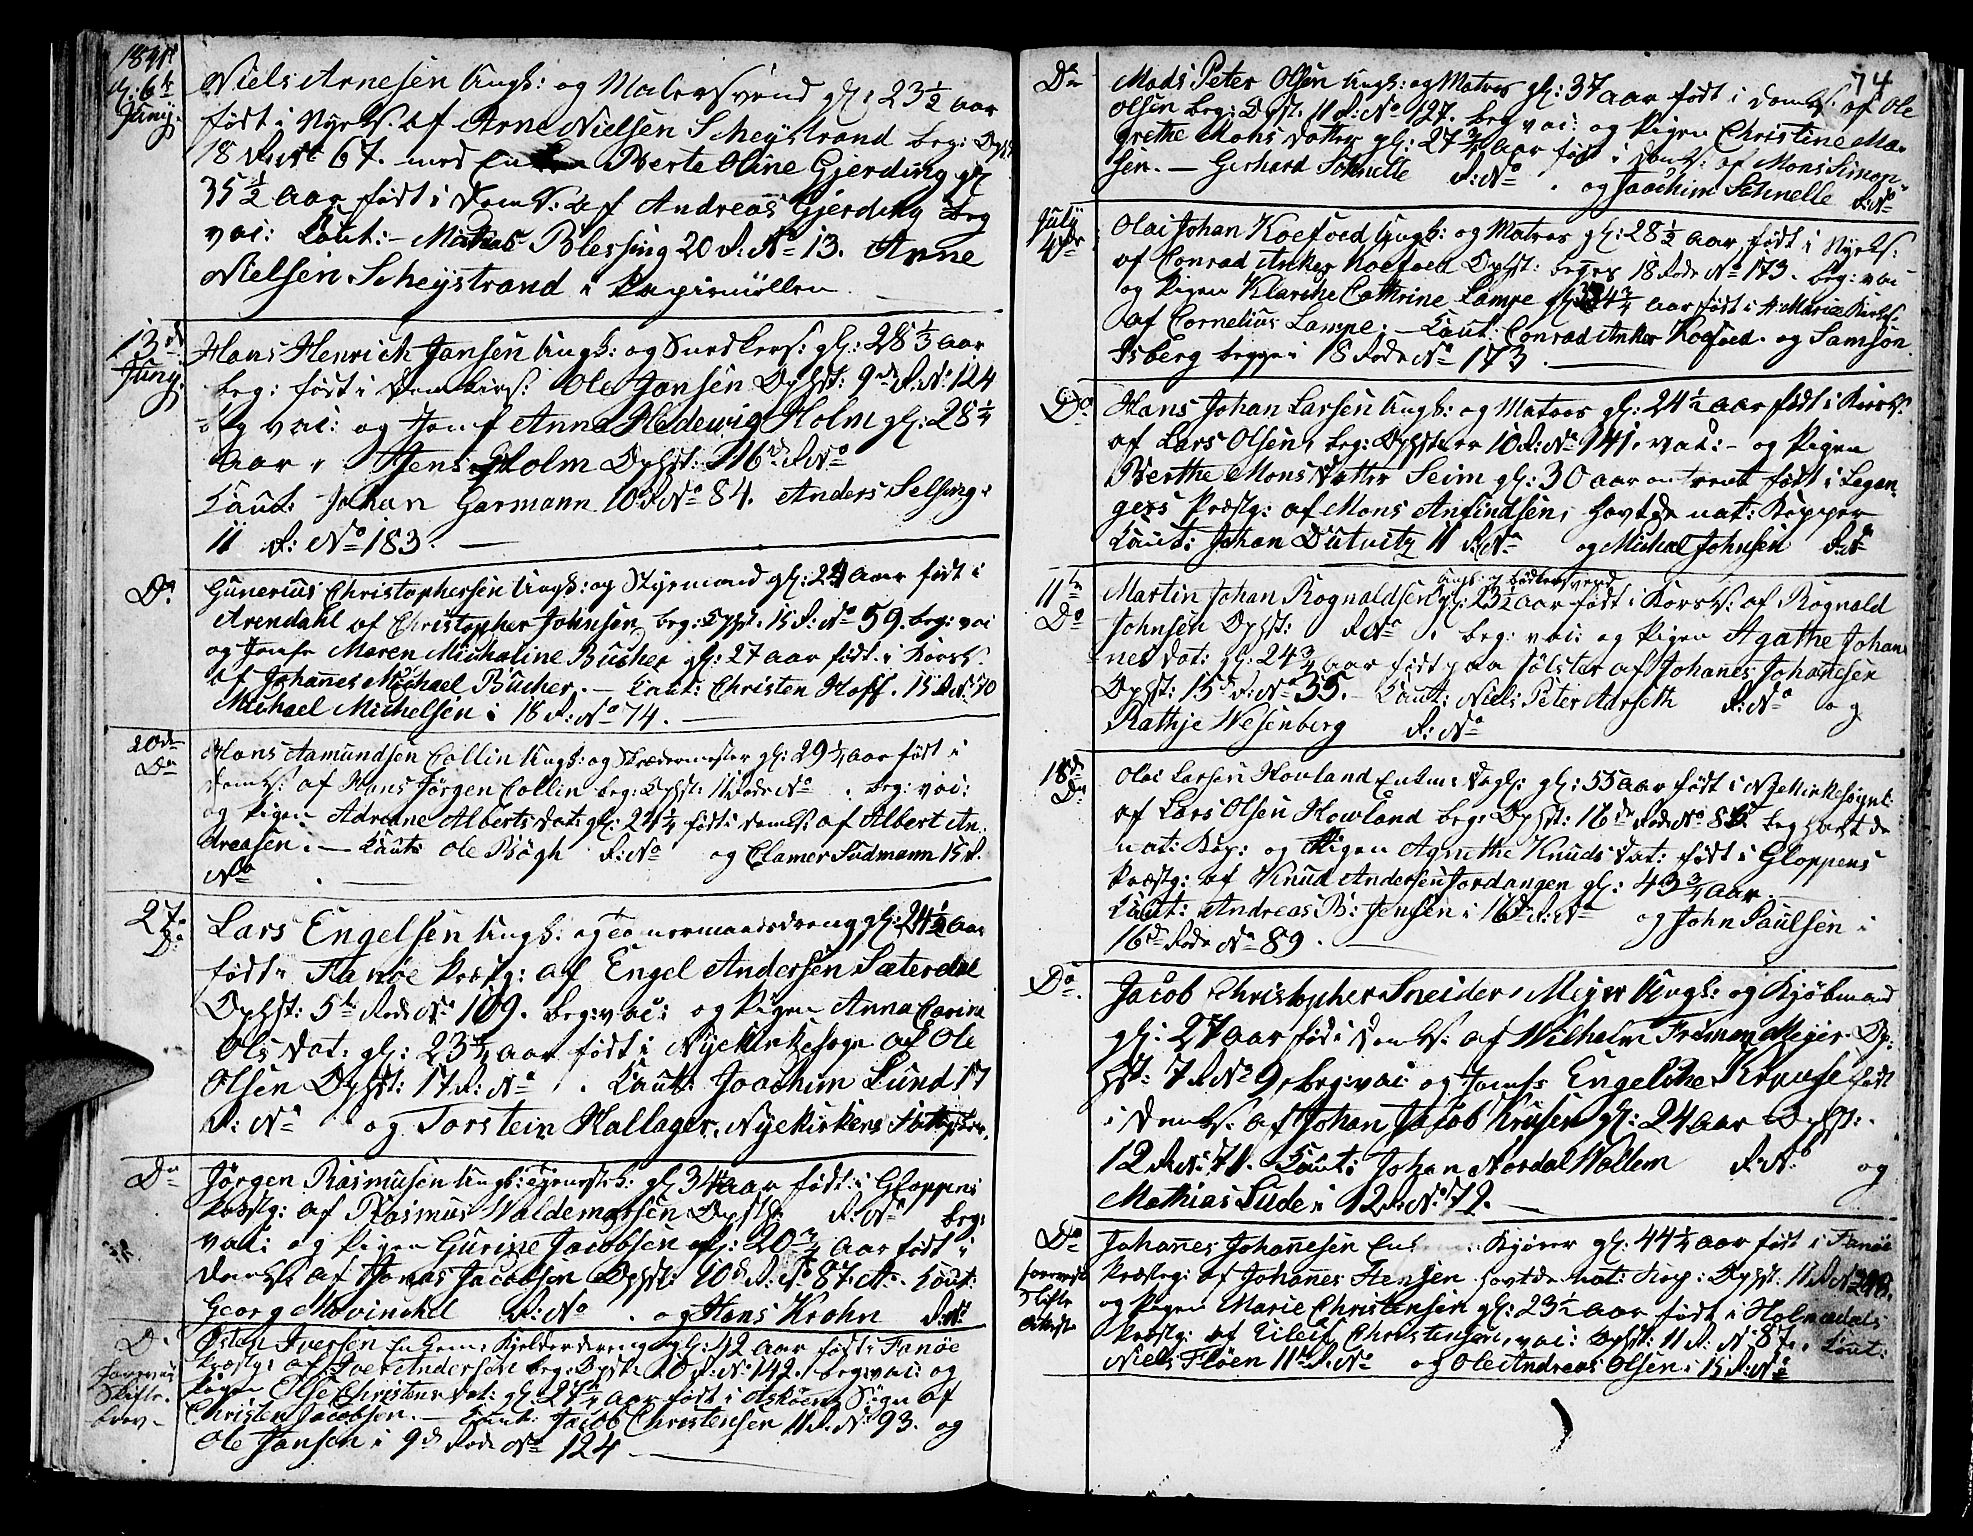 d: 6te Juny. Niels Arnesen Ungk: og Malersvend gl: 23 1/2 aar
født i Nyeks. af Arne Nielsen Scheystrand beg: Ophst
18 R: No 67. med Enken Berte Oline Gjerding gl
35 1/2 aar født i Domk: af Andreas Gjerding beg
vac: Caut:- Blessing 20 R: No 13. Arne
Nielsen Scheystrand i Papirmøllen
13de Juny. Hans Henrich Jansen Ungk: og gl: 28 1/2 aar
beg: født i Domkirs: Ole Jansen Ophst: 9de R: No 124
vac: og Jomf Anna Hedewig Holm gl: 28 1/4
aar Jens Holm Ophst: 16de R No
Caut: Johan Garmann 10 R No 84. Anders Selsing i
11 R: No 183.
Do. Gunerius Christophersen Ungk: og Styrmand gl: 24 aar født i
Arendahl af Christopher Johnsen beg: Ophst. 15 R: No 59. beg: vac
og Jomfr Maren Michaline Bücher gl: 27 aar født i Korsk:
af Johannes Michael Bücher. - Caut: Christen Hoff. 15 R: No 70
Michael Michelsen i 18 R: No 74.
20de Do Hans Aamundsen Collin Ungk: og Skrædermester gl: 29 1/4 aar født i
Domks: af Hans Jørgen Collin beg: Ophst: 11 Rode No . beg: vac:
og Pigen Adriane Alberts Dat: gl: 24 1/4 født i Domk: af Albert An-
dreasen. - Caut: Ole Bøgh R: No og Clamer Sudmann 15 R.
No .
27de Do. Lars Engelsen Ungk: og gl: 24 1/2 aar
født i Fanöe Præstg: af Engel Andersen Sæterdal
Ophst: 5te Rode No 109. beg: vac: og Pigen Anna Carine
Ols Dat: gl: 23 1/4 aar født i Nyekirkesogn af Ole
Olsen Ophst: 17 R: No . Caut: Joachim Lund 17
R: No og Torstein Hallager, Nyekirkens
Do Jørgen Rasmusen Ungk: Tjenestek: gl 34 aar født i Gloppens
Præstg: af Rasmus Waldemarsen Ophst: R: No beg:
vac: og Pigen Gurine Jacobsen gl: 20 3/4 aar født i
Domks. af Jonas Jacobsen Ophst: 10de R: No 87. A. Caut:
Georg Mowinckel R: No . og Hans Krohn R: No
Do. Østen Iversen Enkem: gl: 42 aar født i Fanöe
Præstg: af Iver Andersen beg: Ophst: 10 R: No 142. beg: vac: og
Pigen Else Christens Dat: gl: 27 1/4 aar født i Askøens Sogn af
Christen Jacobsen. - Caut: Jacob Christensen 11 R. No 93. og
Ole Jansen i 9de Rode No 124
74
Do Mads Peter Olsen Ungk: og Matros gl: 37 aar født i Domks: af Ole
Olsen beg: Ophst. 11 R: No 127. beg vac: og Pigen Christine Ma-
grethe Mons Datter gl: 27 3/4 aar født i Domks: af Mons Simon-
sen. - Gerhard Schnelle R: No . og Joachim Schnelle R: No
July 4de Olai Johan Koefoed Ungk: og Matros gl: 28 1/2 aar født i Nyeks:
af Conrad Anker Koefoed Ophst: begges 18 Rode No 173. beg: vac
og Pigen Klariche Cathrine Lampe gl: 34 3/4 aar født i St: Mariæ Kirks:
af Cornelius Lampe. - Caut: Conrad Anker Koefoed. og Samson
Isberg begge i 18 Rode No 173.
Do Hans Johan Larsen Ungk: og Matros gl: 24 1/2 aar født i Korsk:
af Lars Olsen, beg: Ophst er 10 R: No 141, vac:- og Pigen
Berthe Mons Datter Seim gl: 30 aar omtrent født i Legan-
gers Præstg: af Mons Anfindsen, havt de nat: Kopper
Caut: Johan Dütvitz 11 R: No og Michal Johnsen R: No
11te Do Martin Johan Rognaldsen Ungk: og Bødkersvend gl: 23 1/2 aar født i Korsk: af Rognald
Johnsen Ophst: R No . beg: vac: og Pigen Agathe Johan-
nes Dat: gl: 24 3/4 aar født paa Jölster af Johanes Johanesen
Ophst: 15de R: No 35. - Caut: Niels Peter Aarseth R: No og
Rathje Wesenberg R: No
18de Do Olai Larsen Howland Enkm: Dagl: gl: 55 aar født i Nyekirkesogn
af Lars Olsen Howland beg: Ophst: 16de Rode No 86. beg havt de
nat: Kop: og Pigen Agnethe Knuds Dat: født i Gloppens
Præstg: af Knud Andersen Jordangen gl: 43 3/4 aar
Caut: Andreas B: Jensen i 16de R: No og John Paulsen i
16de Rode No 89.
Do. Jacob Christopher Sneider Meyer Ungk: og Kjöbmand
gl: 27 aar föd i Domks. af Wilhelm Friman Meyer Op:
hst: 7 R No 9, beg: vac: og Jomfr Engeliche Krause født
i Domks. af Johan Jacob Krusen gl: 24 aar Ophst:
12 R: No 71. Caut: Johan Nordal Wallem R: No og
Mathias Lude i 12 R: No 72.
Do Johanes Johanesen Enk : Kjører gl: 44 1/4 aar født i Fanöe
Præstg: af Johanes Hensen havt de nat: Kop: Ophst. 11 R No
og Pigen Marie Christensen gl: 23 1/2 aar født i Holmedals
Præstg: af Christensen, vac: Ophst: 11 R: No 87. Caut:
Niels Fløen 11te R: No og Ole Andreas Olsen i 15 R: No